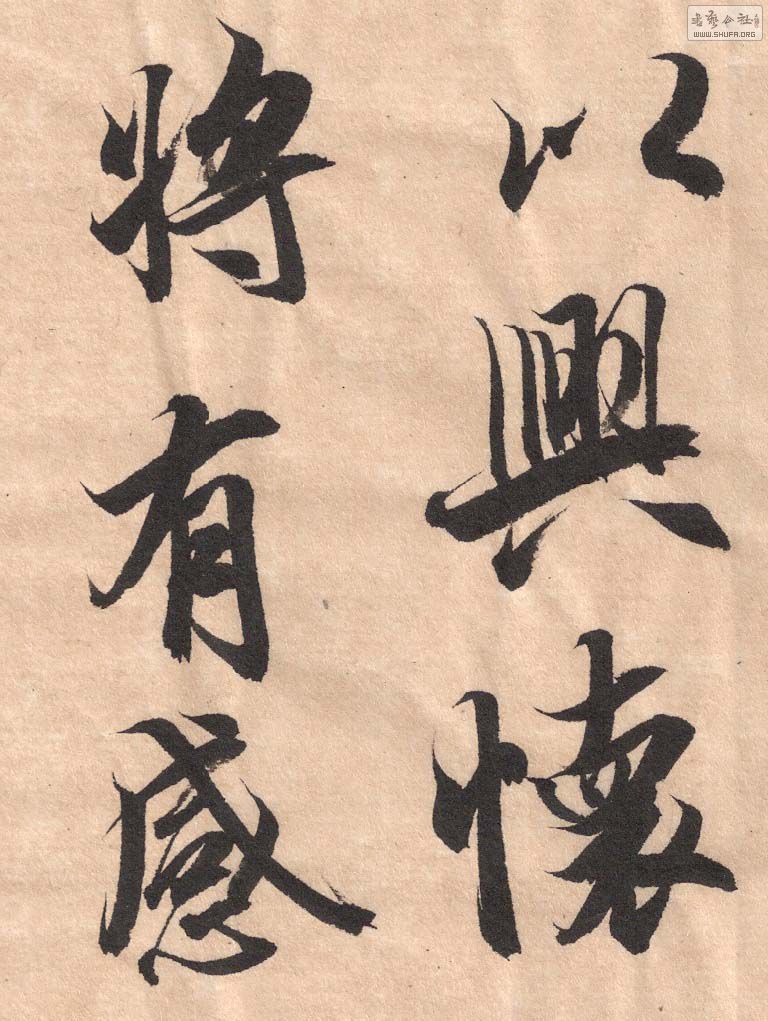 以興懷
將有感
WWW.SHUFA.ORG